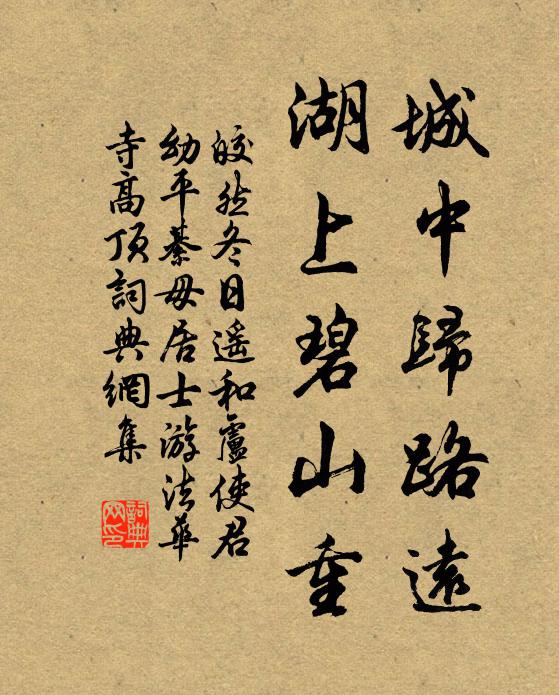 城中歸路遠
湖上碧山重
皎然冬日遥和盧使君
幼平綦毋居士游法華
寺高頂詞典網集
詞典
网印